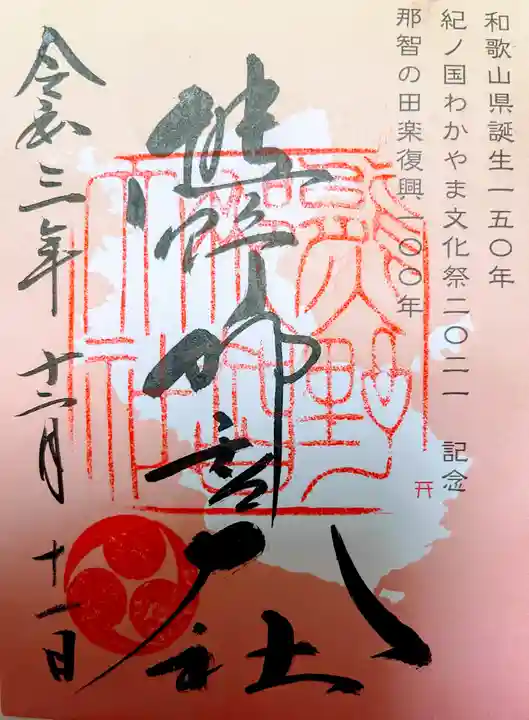 和歌山県誕生一五〇年
紀ノ国わかやま文化祭二〇二一 記念
那智の田楽復興一〇〇年
熊野那智大社
令和三年 十二月 十一日